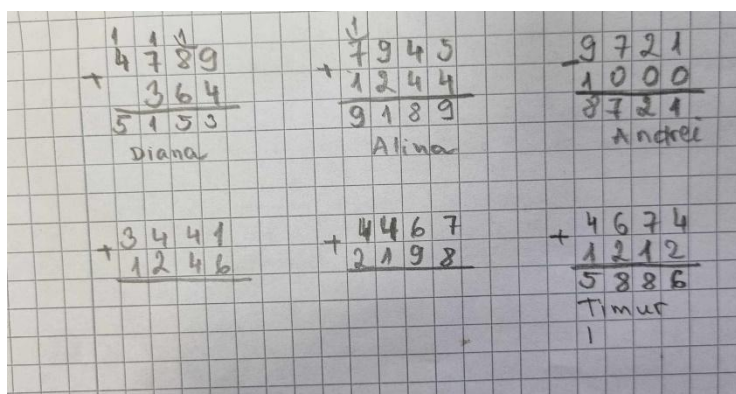 1 1 1
4789
+ 364
5153
Diana
1
7945
+ 1244
9189
Alina
- 9721
1000
8721
Andrei
+ 3441
1246
+ 4467
2198
+ 4674
1212
5886
Timur
1